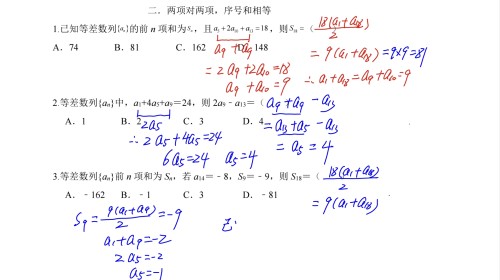 二、两项对两项，序号和相等
1.已知等差数列{aₙ}的前 n 项和为Sₙ，且a₅+2a₁₀+a₁₃=18，则S₁₈=（ 18(a₁+a₁₈)/2
A．74 B．81 C．162 D．148
a₉+a₉
=9(a₁+a₁₈)=9×9=81
=2a₉+2a₁₀=18
a₉+a₁₀=9
∴a₁+a₁₈=a₉+a₁₀=9
2.等差数列{aₙ}中，a₁+4a₅+a₉=24，则 2a₉﹣a₁₃=（ a₉+a₉-a₁₃
A．1 B．2 C．3 D．4
2a₅
=a₁₃+a₅-a₁₃
∴2a₅+4a₅=24
=a₅=4
6a₅=24 a₅=4
3.等差数列{aₙ}前 n 项和为 Sₙ，若 a₁₄=﹣8，S₉=﹣9，则 S₁₈=（ 18(a₁+a₁₈)/2
A．﹣162 B．﹣1 C．3 D．﹣81
=9(a₁+a₁₈)
S₉=9(a₁+a₉)/2=-9
a₁+a₉=-2
2a₅=-2
a₅=-1